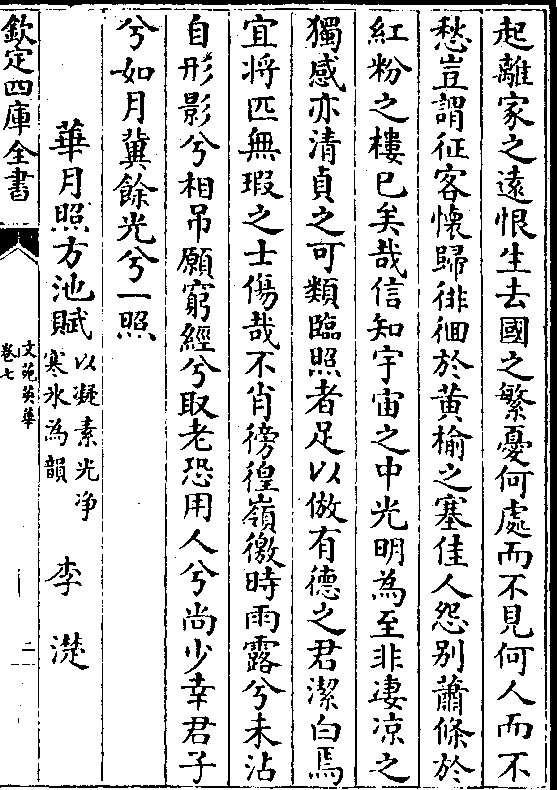 起離家之遠恨生去國之繁憂何處而不見何人而不
愁豈謂征客懷歸徘徊於黄榆之塞佳人怨别蕭條於
紅粉之樓已矣哉信知宇宙之中光明為至非凄凉之
獨感亦清貞之可類臨照者足以倣有德之君潔白焉
宜将匹無瑕之士傷哉不肖徬徨嶺徼時雨露兮未沾
自形影兮相吊願窮經兮取老恐用人兮尚少幸君子
兮如月冀餘光兮一照
華月照方池賦以凝素光净寒氷為韻 李澄
欽定四庫全書
文苑英華
卷七
二